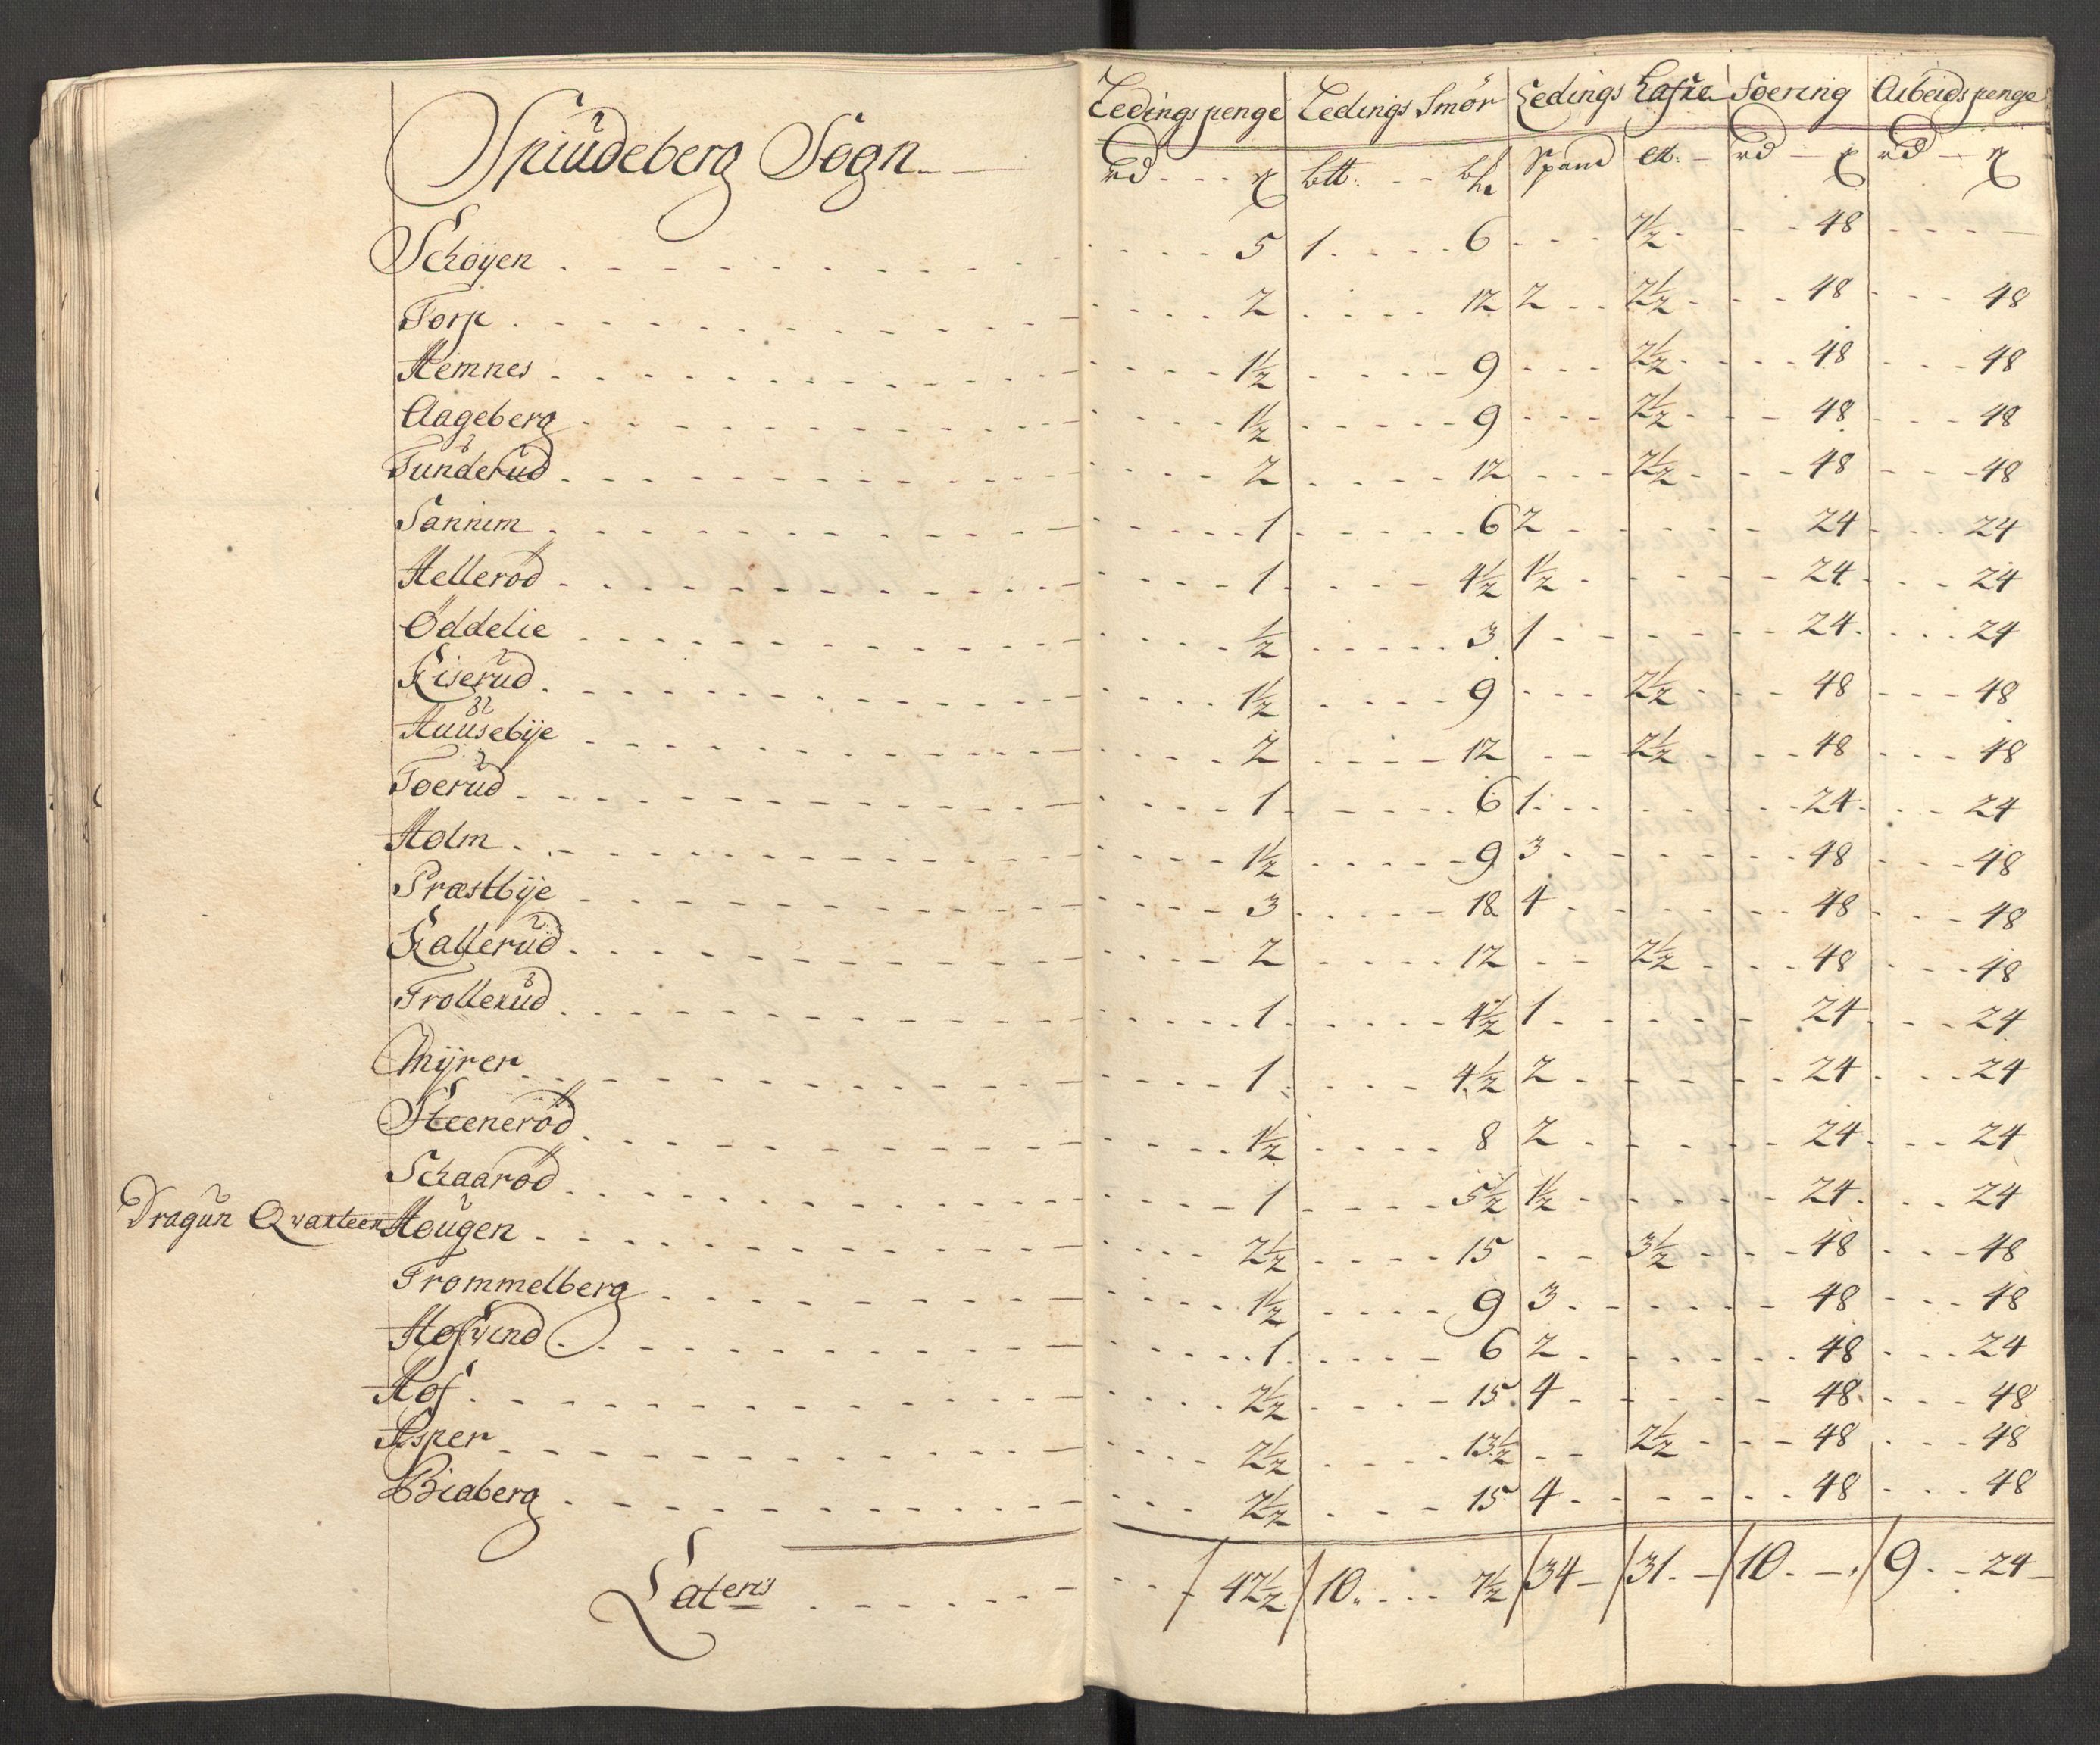 Spiudeberg Sogn Ledings penge Ledings Smör Ledings Hafre Foering Arbeids penge
rd ß btt: bh Spand ett: rd ß rd ß
Schøyen 5 1 6 1½ 48
Torp 2 12 2 2½ 48 48
Hemnes 1½ 9 2½ 48 48
Aageberg 1½ 9 2½ 48 48
Tunderud 2 12 2½ 48 48
Sannim 1 6 2 24 24
Hellerød 1 4½ 1½ 24 24
Øddelie ½ 3 1 24 24
Kiserud 1½ 9 2½ 48 48
Huusebÿe 2 12 2½ 48 48
Toerud 1 6 1 24 24
Holm 1½ 9 3 48 48
Præstbÿe 3 18 4 48 48
Kallerud 2 12 2½ 48 48
Trollerud 1 4½ 1 24 24
Mÿrer 1 4½ 2 24 24
Steenerød 1½ 8 2 24 24
Schaarød 1 5½ 1½ 24 24
Dragun Qvarteer Hougen 2½ 15 3½ 48 48
Trommelberg 1½ 9 3 48 48
Hofvind 1 6 2 48 24
Hof 2½ 15 4 48 48
Asper 2½ 13½ 2½ 48 48
Biaberg 2½ 15 4 48 48
Lateris 42½ 10 7½ 34 31 10 9 24